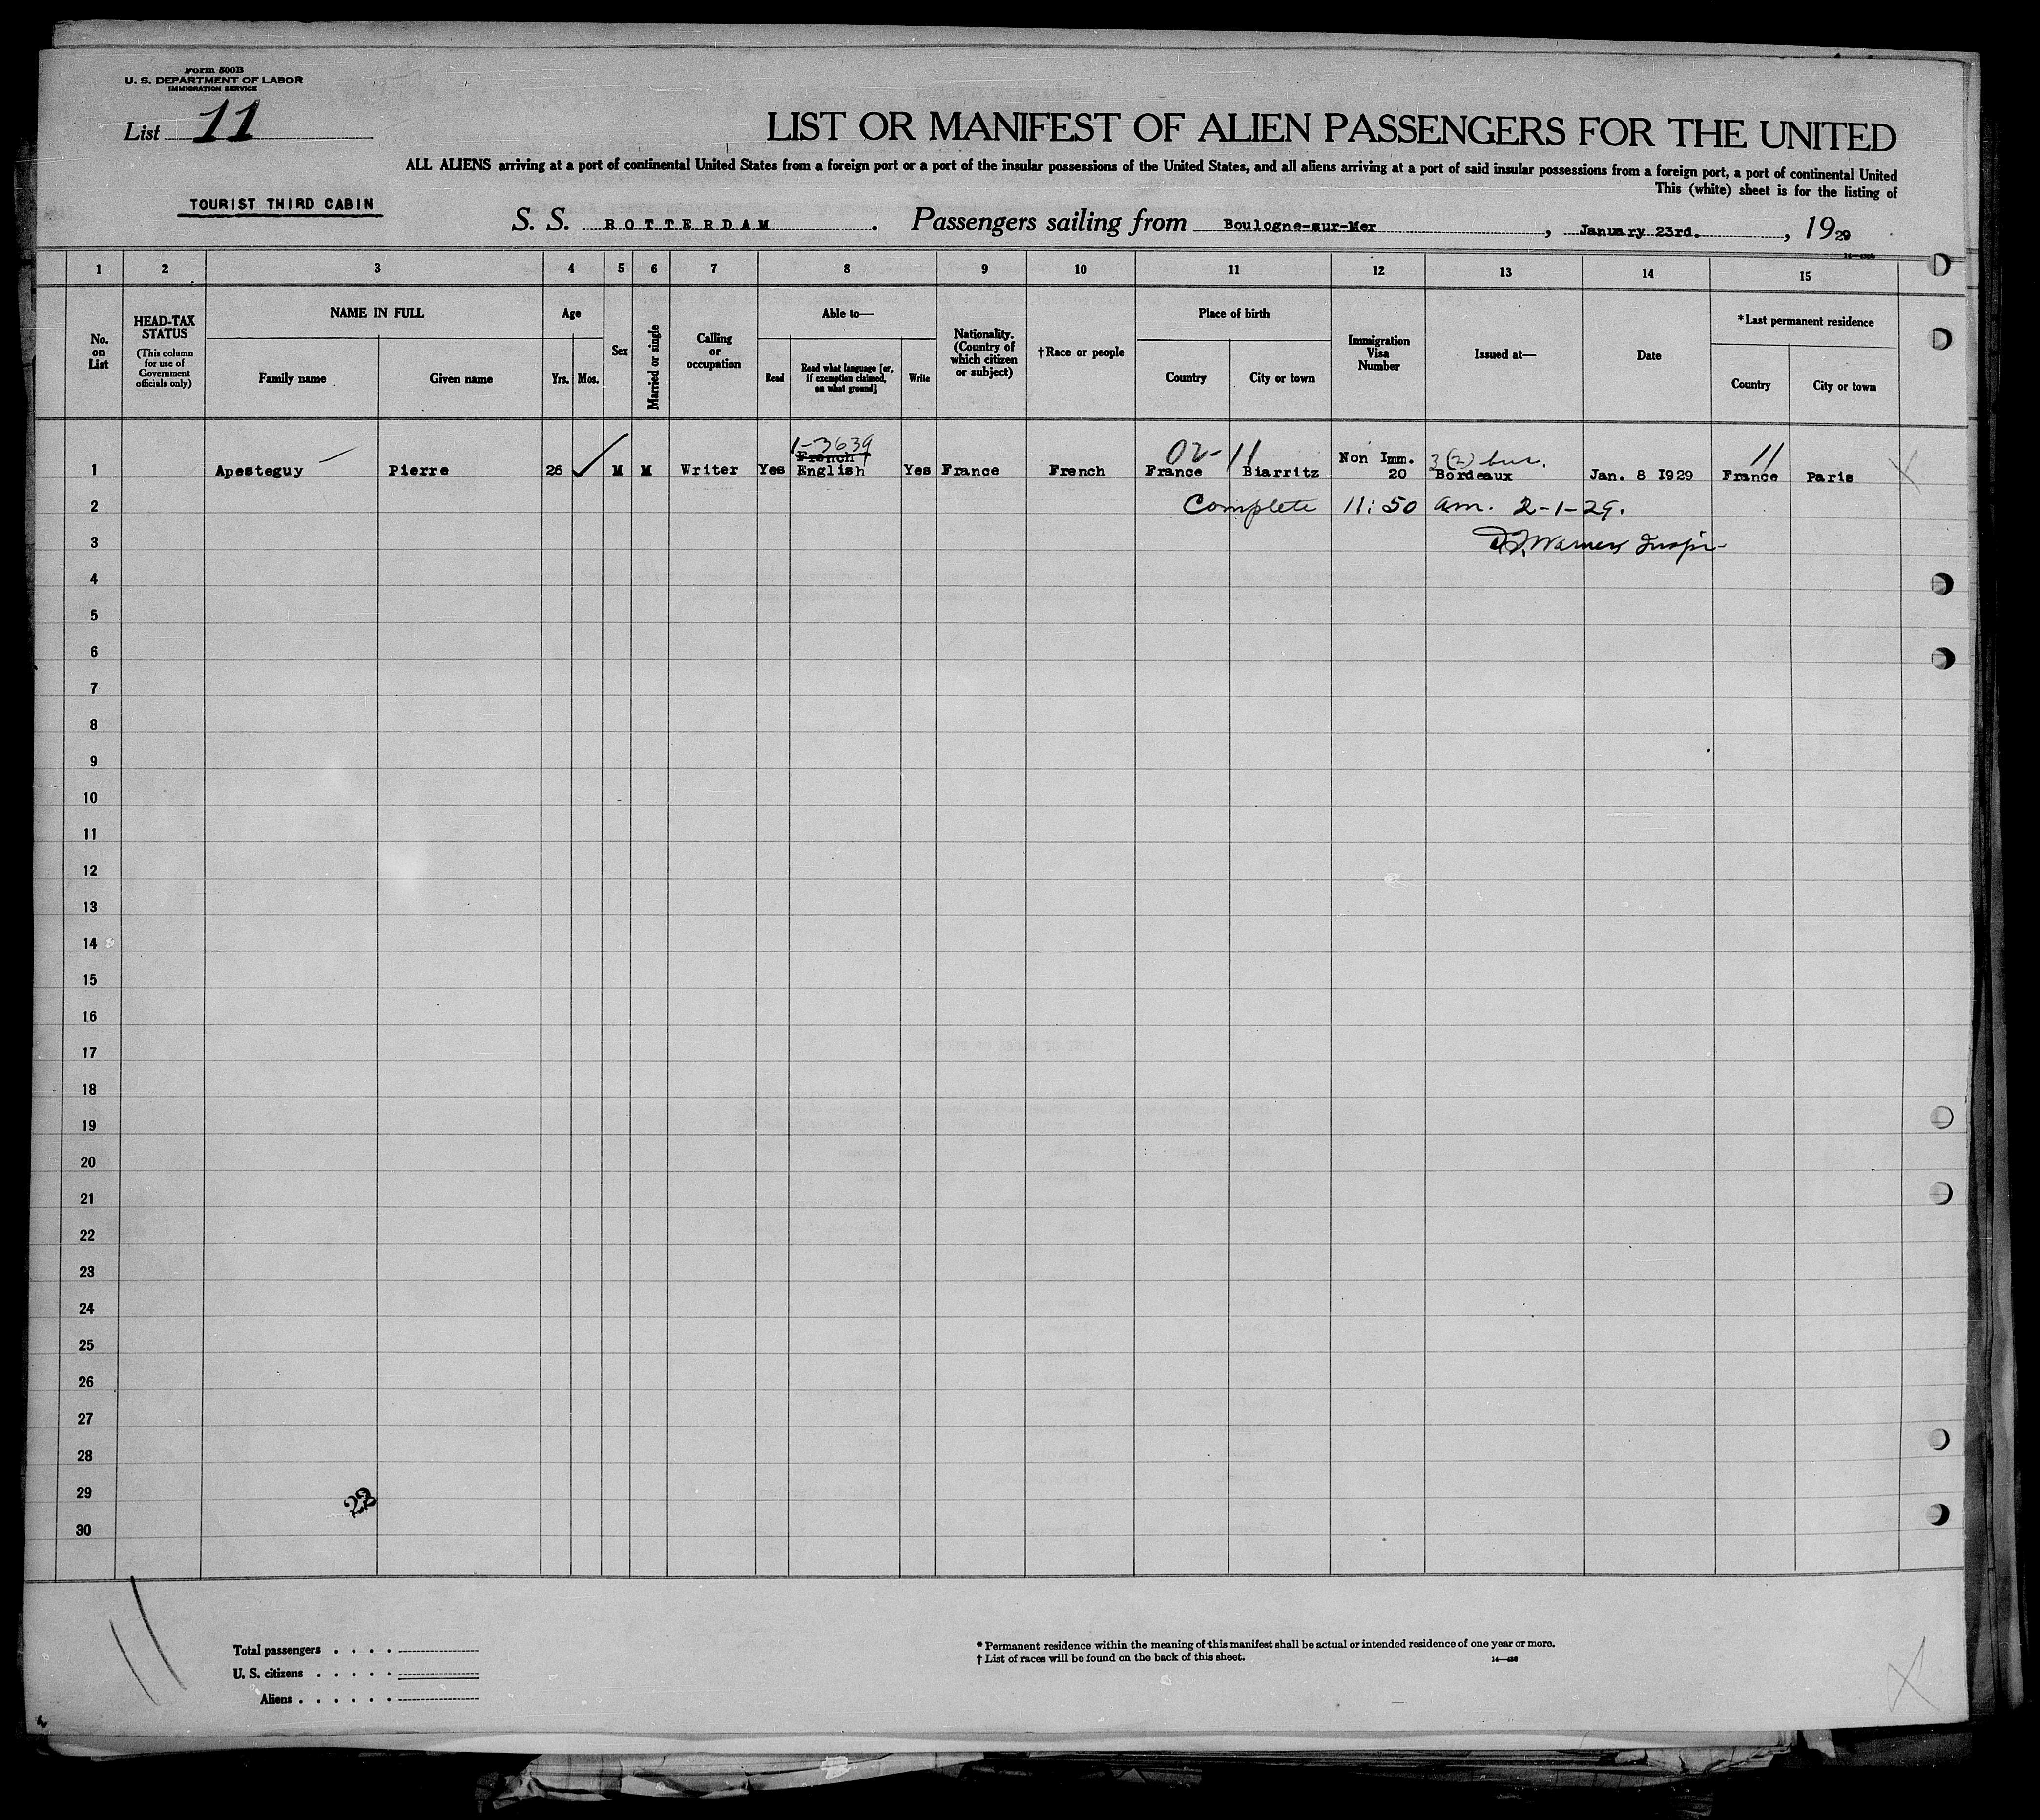 Form 500B
U. S. DEPARTMENT OF LABOR
IMMIGRATION SERVICE
List 11
LIST OR MANIFEST OF ALIEN PASSENGERS FOR THE UNITED
ALL ALIENS arriving at a port of continental United States from a foreign port or a port of the insular possessions of the United States, and all aliens arriving at a port of said insular possessions from a foreign port, a port of continental United
This (white) sheet is for the listing of
TOURIST THIRD CABIN
S. S. ROTTERDAM . Passengers sailing from Boulogne-sur-Mer , January 23rd. , 1929
1 2 3 4 5 6 7 8 9 10 11 12 13 14 15
No. on List
HEAD-TAX STATUS
(This column for use of Government officials only)
NAME IN FULL
Family name
Given name
Age
Yrs. Mos.
Sex
Married or single
Calling or occupation
Able to—
Read
Read what language [or, if exemption claimed, on what ground]
Write
Nationality. (Country of which citizen or subject)
†Race or people
Place of birth
Country
City or town
Immigration Visa Number
Issued at—
Date
*Last permanent residence
Country
City or town
1-3639 02-11 3(2) bus. 11
French
1 Apesteguy Pierre 26 M M Writer Yes English Yes France French France Biarritz Non Imm. 20 Bordeaux Jan. 8 1929 France Paris X
2 Complete 11:50 am. 2-1-29.
3 Inspr
4
5
6
7
8
9
10
11
12
13
14
15
16
17
18
19
20
21
22
23
24
25
26
27
28
29
30
23
Total passengers . . . .
U. S. citizens . . . . .
Aliens . . . . . .
* Permanent residence within the meaning of this manifest shall be actual or intended residence of one year or more.
† List of races will be found on the back of this sheet.
X